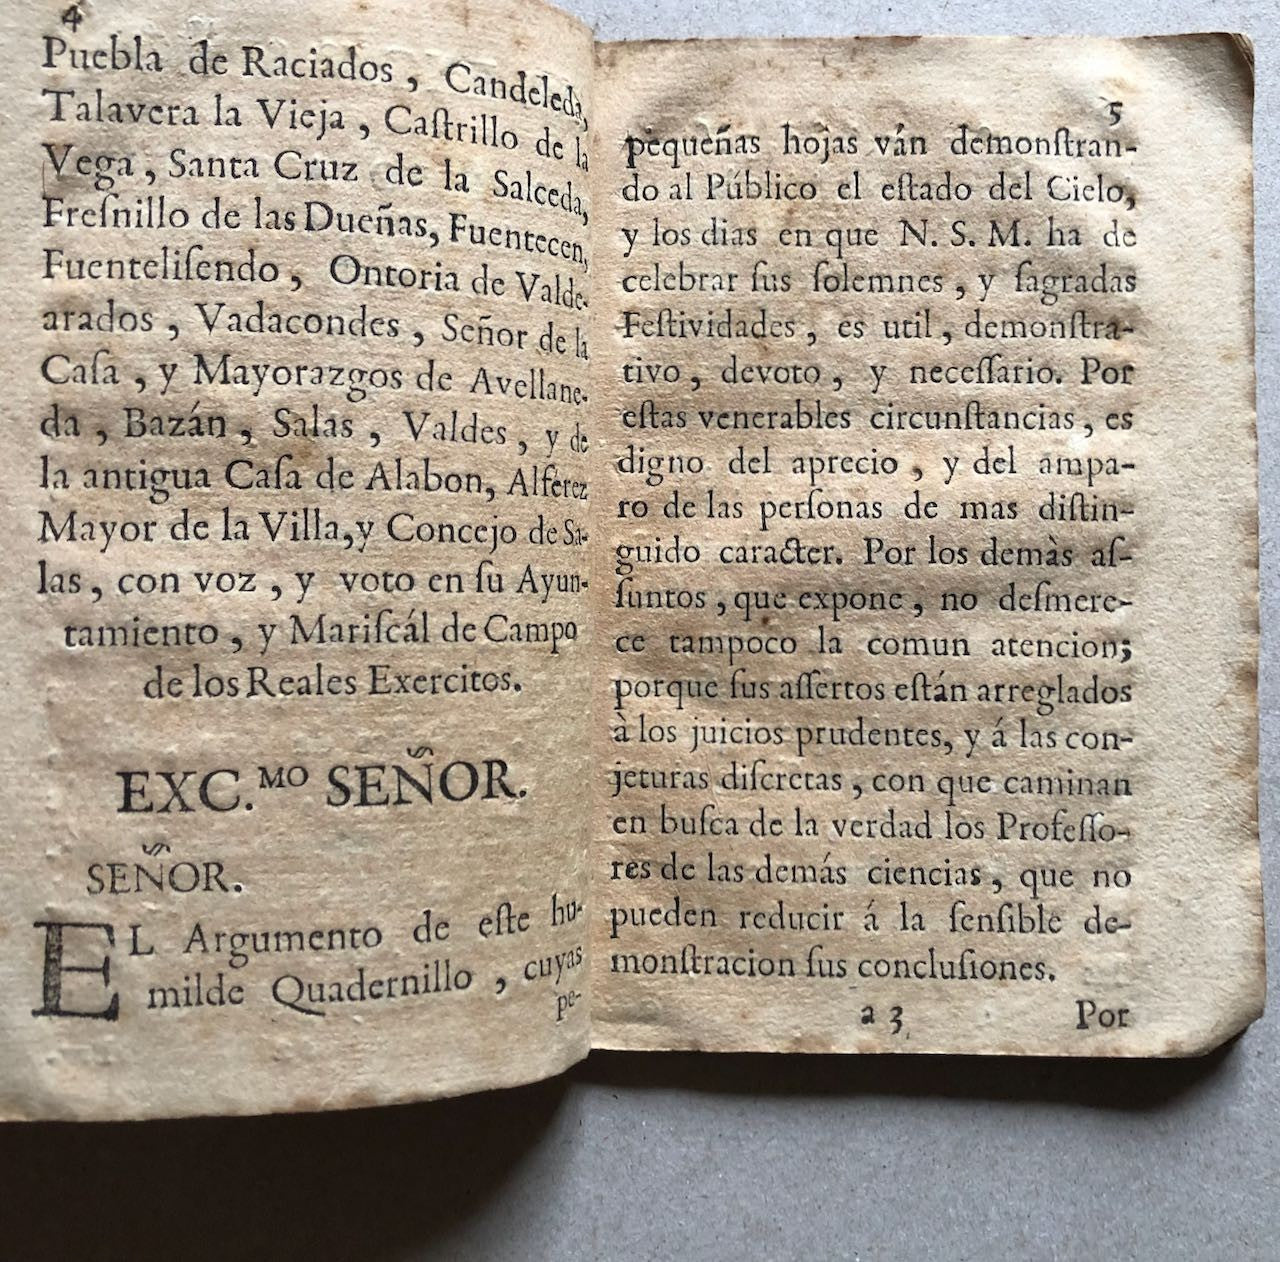 4
Puebla de Raciados, Candeleda,
Talavera la Vieja, Caſtrillo de la
Vega, Santa Cruz de la Salceda,
Freſnillo de las Dueñas, Fuentecen,
Fuenteliſendo, Ontoria de Valde-
arados, Vadacondes, Señor de la
Caſa, y Mayorazgos de Avellane-
da, Bazán, Salas, Valdes, y de
la antigua Caſa de Alabon, Alferez
Mayor de la Villa, y Concejo de Sa-
las, con voz, y voto en ſu Ayun-
tamiento, y Mariſcál de Campo
de los Reales Exercitos.
EXC.MO SEÑOR.
SEÑOR.
EL Argumento de eſte hu-
milde Quadernillo, cuyas
pe-
5
pequeñas hojas ván demonſtran-
do al Público el eſtado del Cielo,
y los dias en que N. S. M. ha de
celebrar ſus ſolemnes, y ſagradas
Feſtividades, es util, demonſtra-
tivo, devoto, y neceſſario. Por
eſtas venerables circunſtancias, es
digno del aprecio, y del ampa-
ro de las perſonas de mas diſtin-
guido caracter. Por los demàs aſ-
ſuntos, que expone, no deſmere-
ce tampoco la comun atencion;
porque ſus aſſertos eſtán arreglados
à los juicios prudentes, y á las con-
jeturas diſcretas, con que caminan
en buſca de la verdad los Profeſſo-
res de las demás ciencias, que no
pueden reducir á la ſenſible de-
monſtracion ſus concluſiones.
a 3
Por